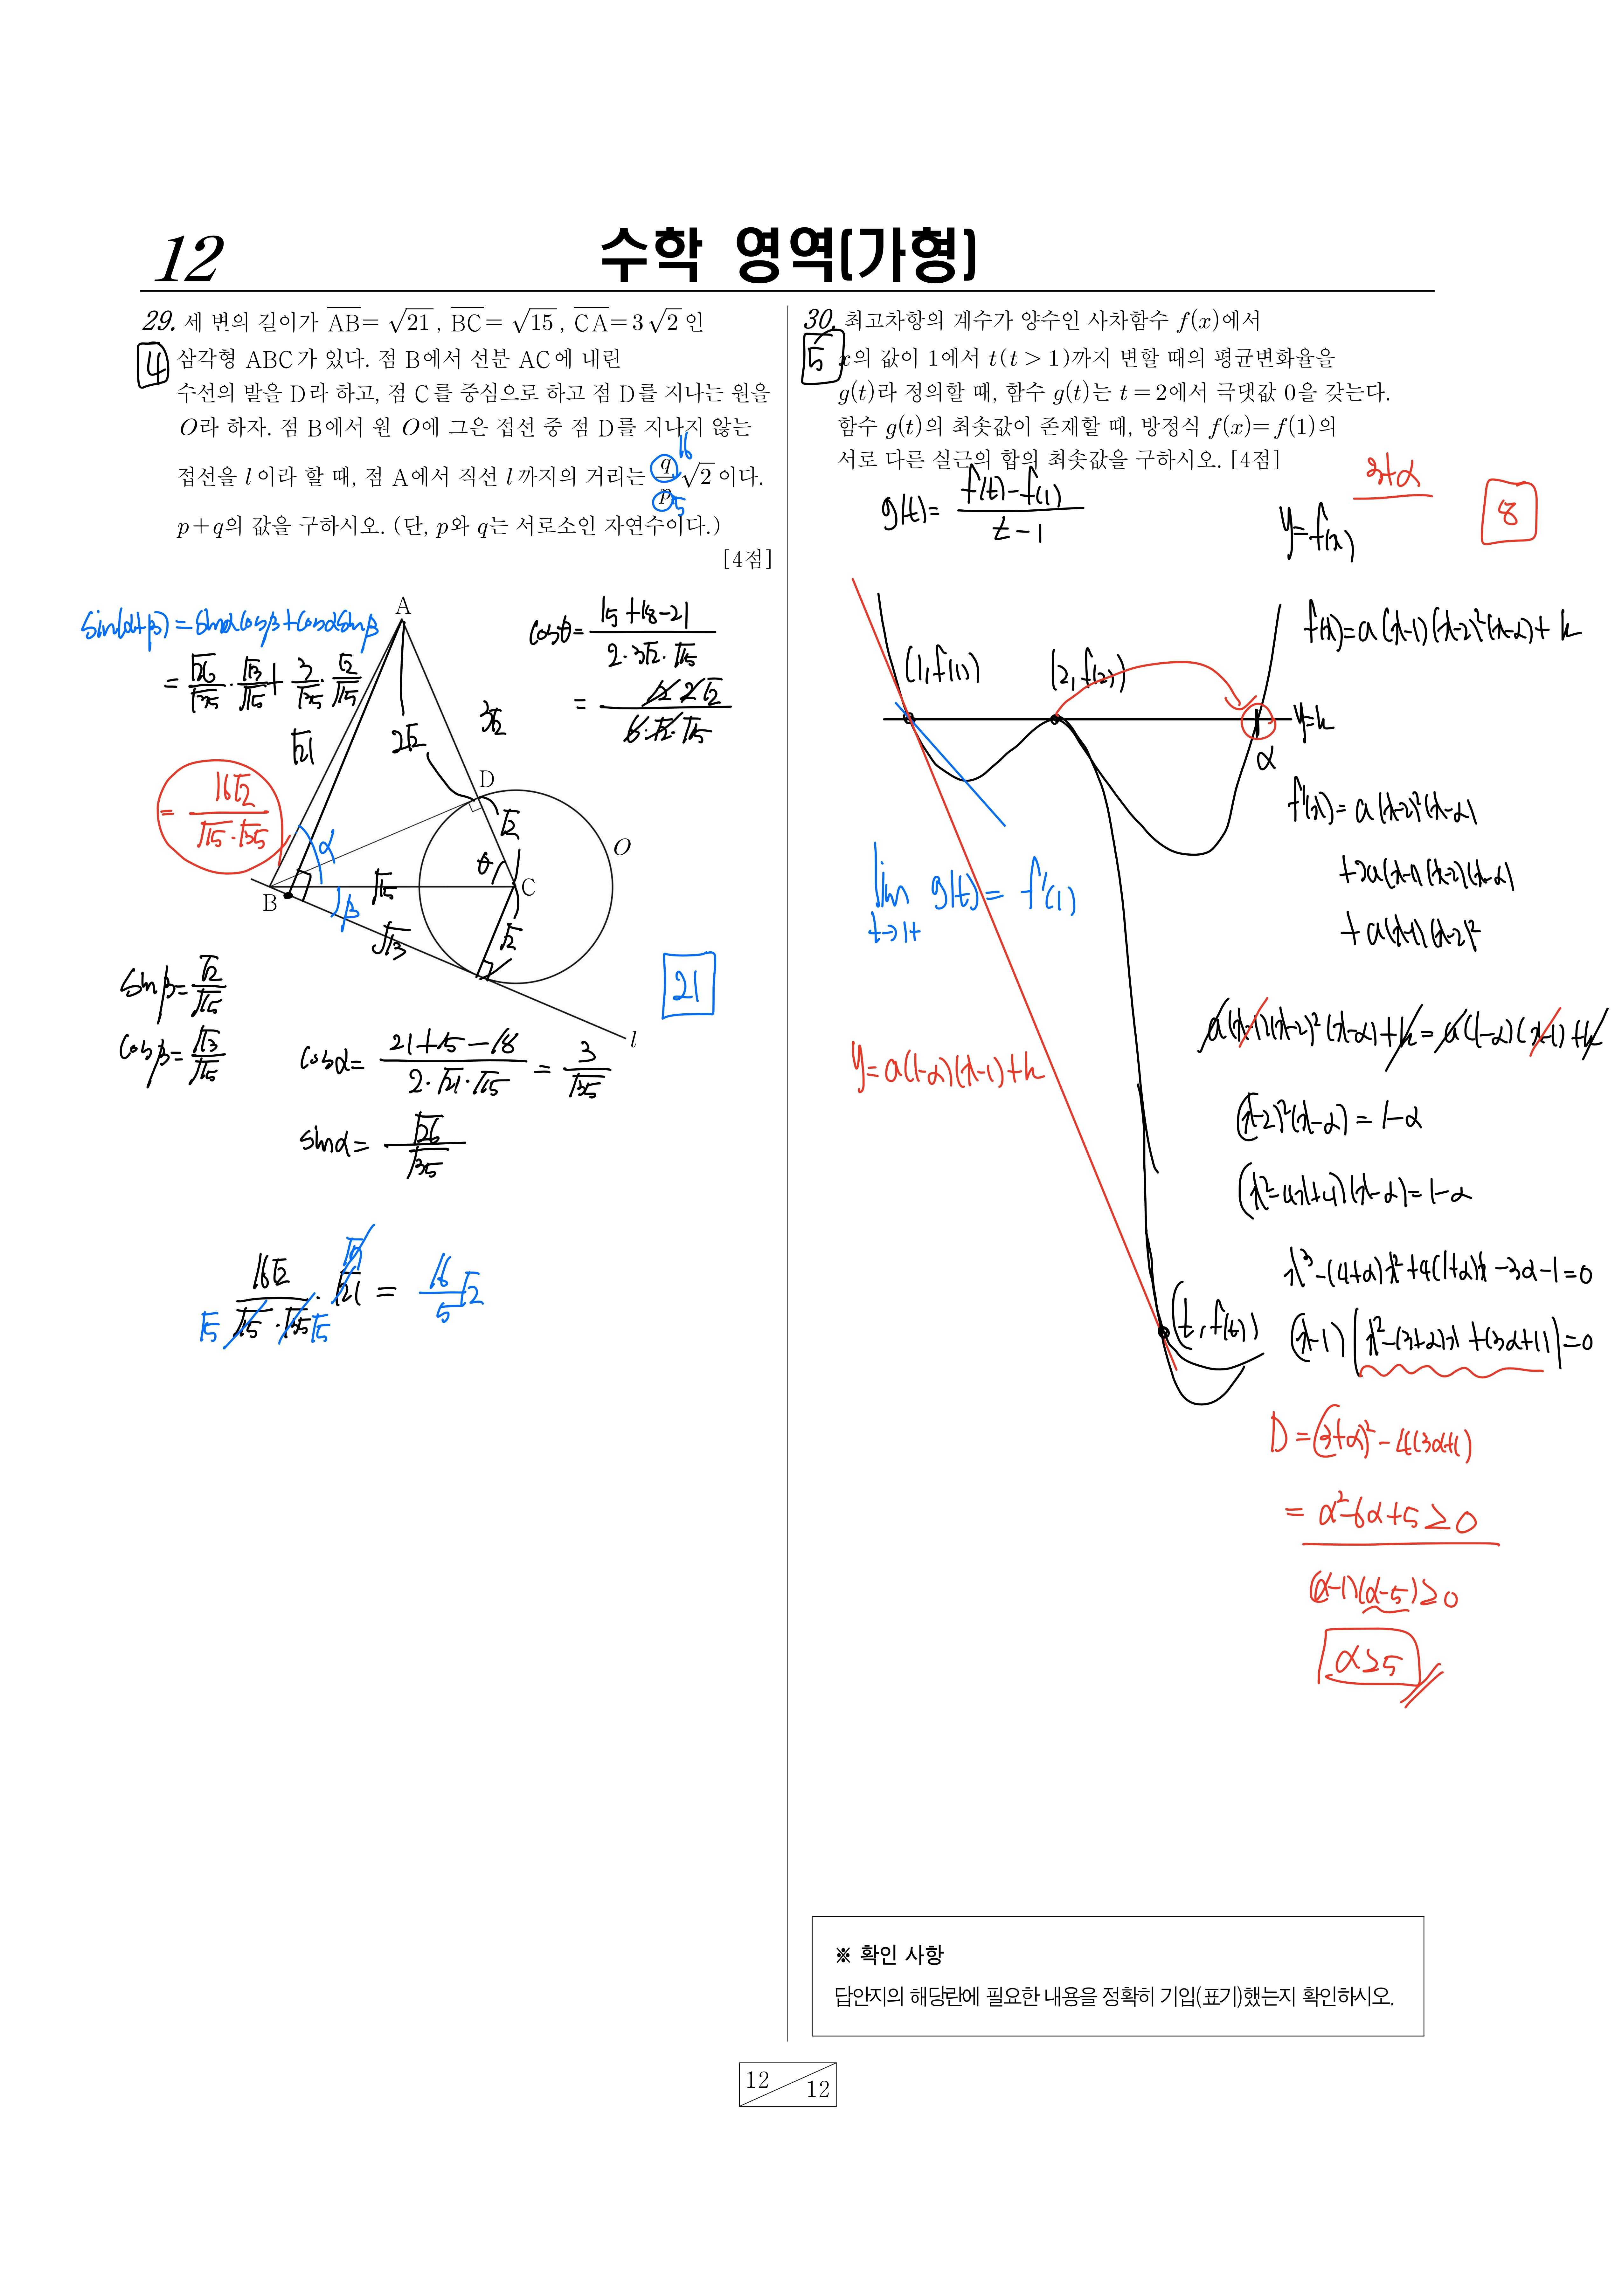 12
수학 영역(가형)
29. 세 변의 길이가 AB=√21, BC=√15, CA=3√2인
4
삼각형 ABC가 있다. 점 B에서 선분 AC에 내린
수선의 발을 D라 하고, 점 C를 중심으로 하고 점 D를 지나는 원을
O라 하자. 점 B에서 원 O에 그은 접선 중 점 D를 지나지 않는
접선을 l이라 할 때, 점 A에서 직선 l까지의 거리는 q/p √2이다.
16
5
p+q의 값을 구하시오. (단, p와 q는 서로소인 자연수이다.)
[4점]
sin(α+β)=sinαcosβ+cosαsinβ
= √26/√35 · √13/√15 + 3/√35 · √2/√15
= 16√2/(√15·√35)
cosθ= (15+18-21)/(2·3√2·√15)
= 12 2√2/(6·√2·√15)
A
√21
2√2
3√2
D
√2
O
θ
α
B
√15
C
β
√13
√2
l
21
sinβ= √2/√15
cosβ= √13/√15
cosα= (21+15-18)/(2·√21·√15) = 3/√35
sinα= √26/√35
16√2/(√15·√35) · √21 = 16/5 √2
√5 √5
30. 최고차항의 계수가 양수인 사차함수 f(x)에서
5
x의 값이 1에서 t(t>1)까지 변할 때의 평균변화율을
g(t)라 정의할 때, 함수 g(t)는 t=2에서 극댓값 0을 갖는다.
함수 g(t)의 최솟값이 존재할 때, 방정식 f(x)=f(1)의
서로 다른 실근의 합의 최솟값을 구하시오. [4점]
3+α
8
g(t)= (f(t)-f(1))/(t-1)
y=f(x)
f(x)=a(x-1)(x-2)²(x-α)+k
(1,f(1))
(2,f(2))
y=k
α
f'(x)=a(x-2)²(x-α)
+2a(x-1)(x-2)(x-α)
+a(x-1)(x-2)²
lim g(t)=f'(1)
t→1+
a(x-1)(x-2)²(x-α)+k=a(1-α)(x-1)+k
y=a(1-α)(x-1)+k
(x-2)²(x-α)=1-α
(x²-4x+4)(x-α)=1-α
x³-(4+α)x²+4(1+α)x-3α-1=0
(t,f(t))
(x-1)(x²-(3+α)x+(3α+1))=0
D=(3+α)²-4(3α+1)
=α²-6α+5≥0
(α-1)(α-5)≥0
α≥5
※ 확인 사항
답안지의 해당란에 필요한 내용을 정확히 기입(표기)했는지 확인하시오.
12
12